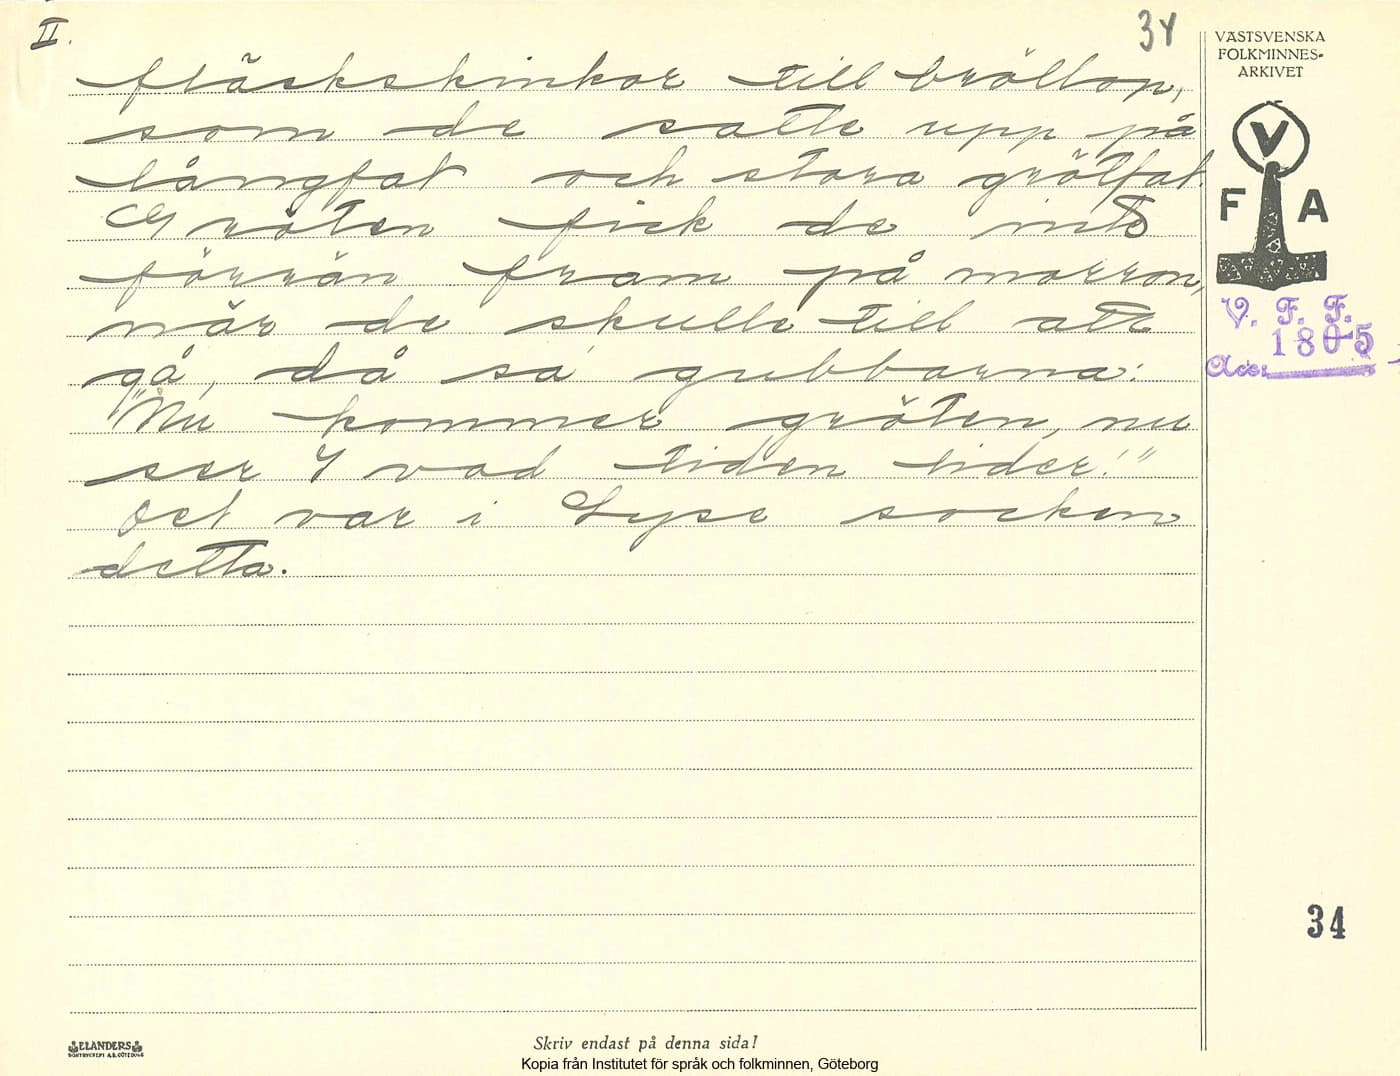 II.
34
VÄSTSVENSKA
FOLKMINNES-
ARKIVET
V
F A
V. F. F.
1805
Acc:
fläskskinkor till bröllop,
som de satte upp på
långfat och stora grötfat.
Gröten fick de inte
förrän fram på morron,
när de skulle till att
gå, då sa gubbarna:
"Nu kommer gröten, nu
ser I vad tiden lider!"
Det var i Lyse socken
detta.
34
ELANDERS
BOKTRYCKERI A.B. GÖTEBORG
Skriv endast på denna sida!
Kopia från Institutet för språk och folkminnen, Göteborg